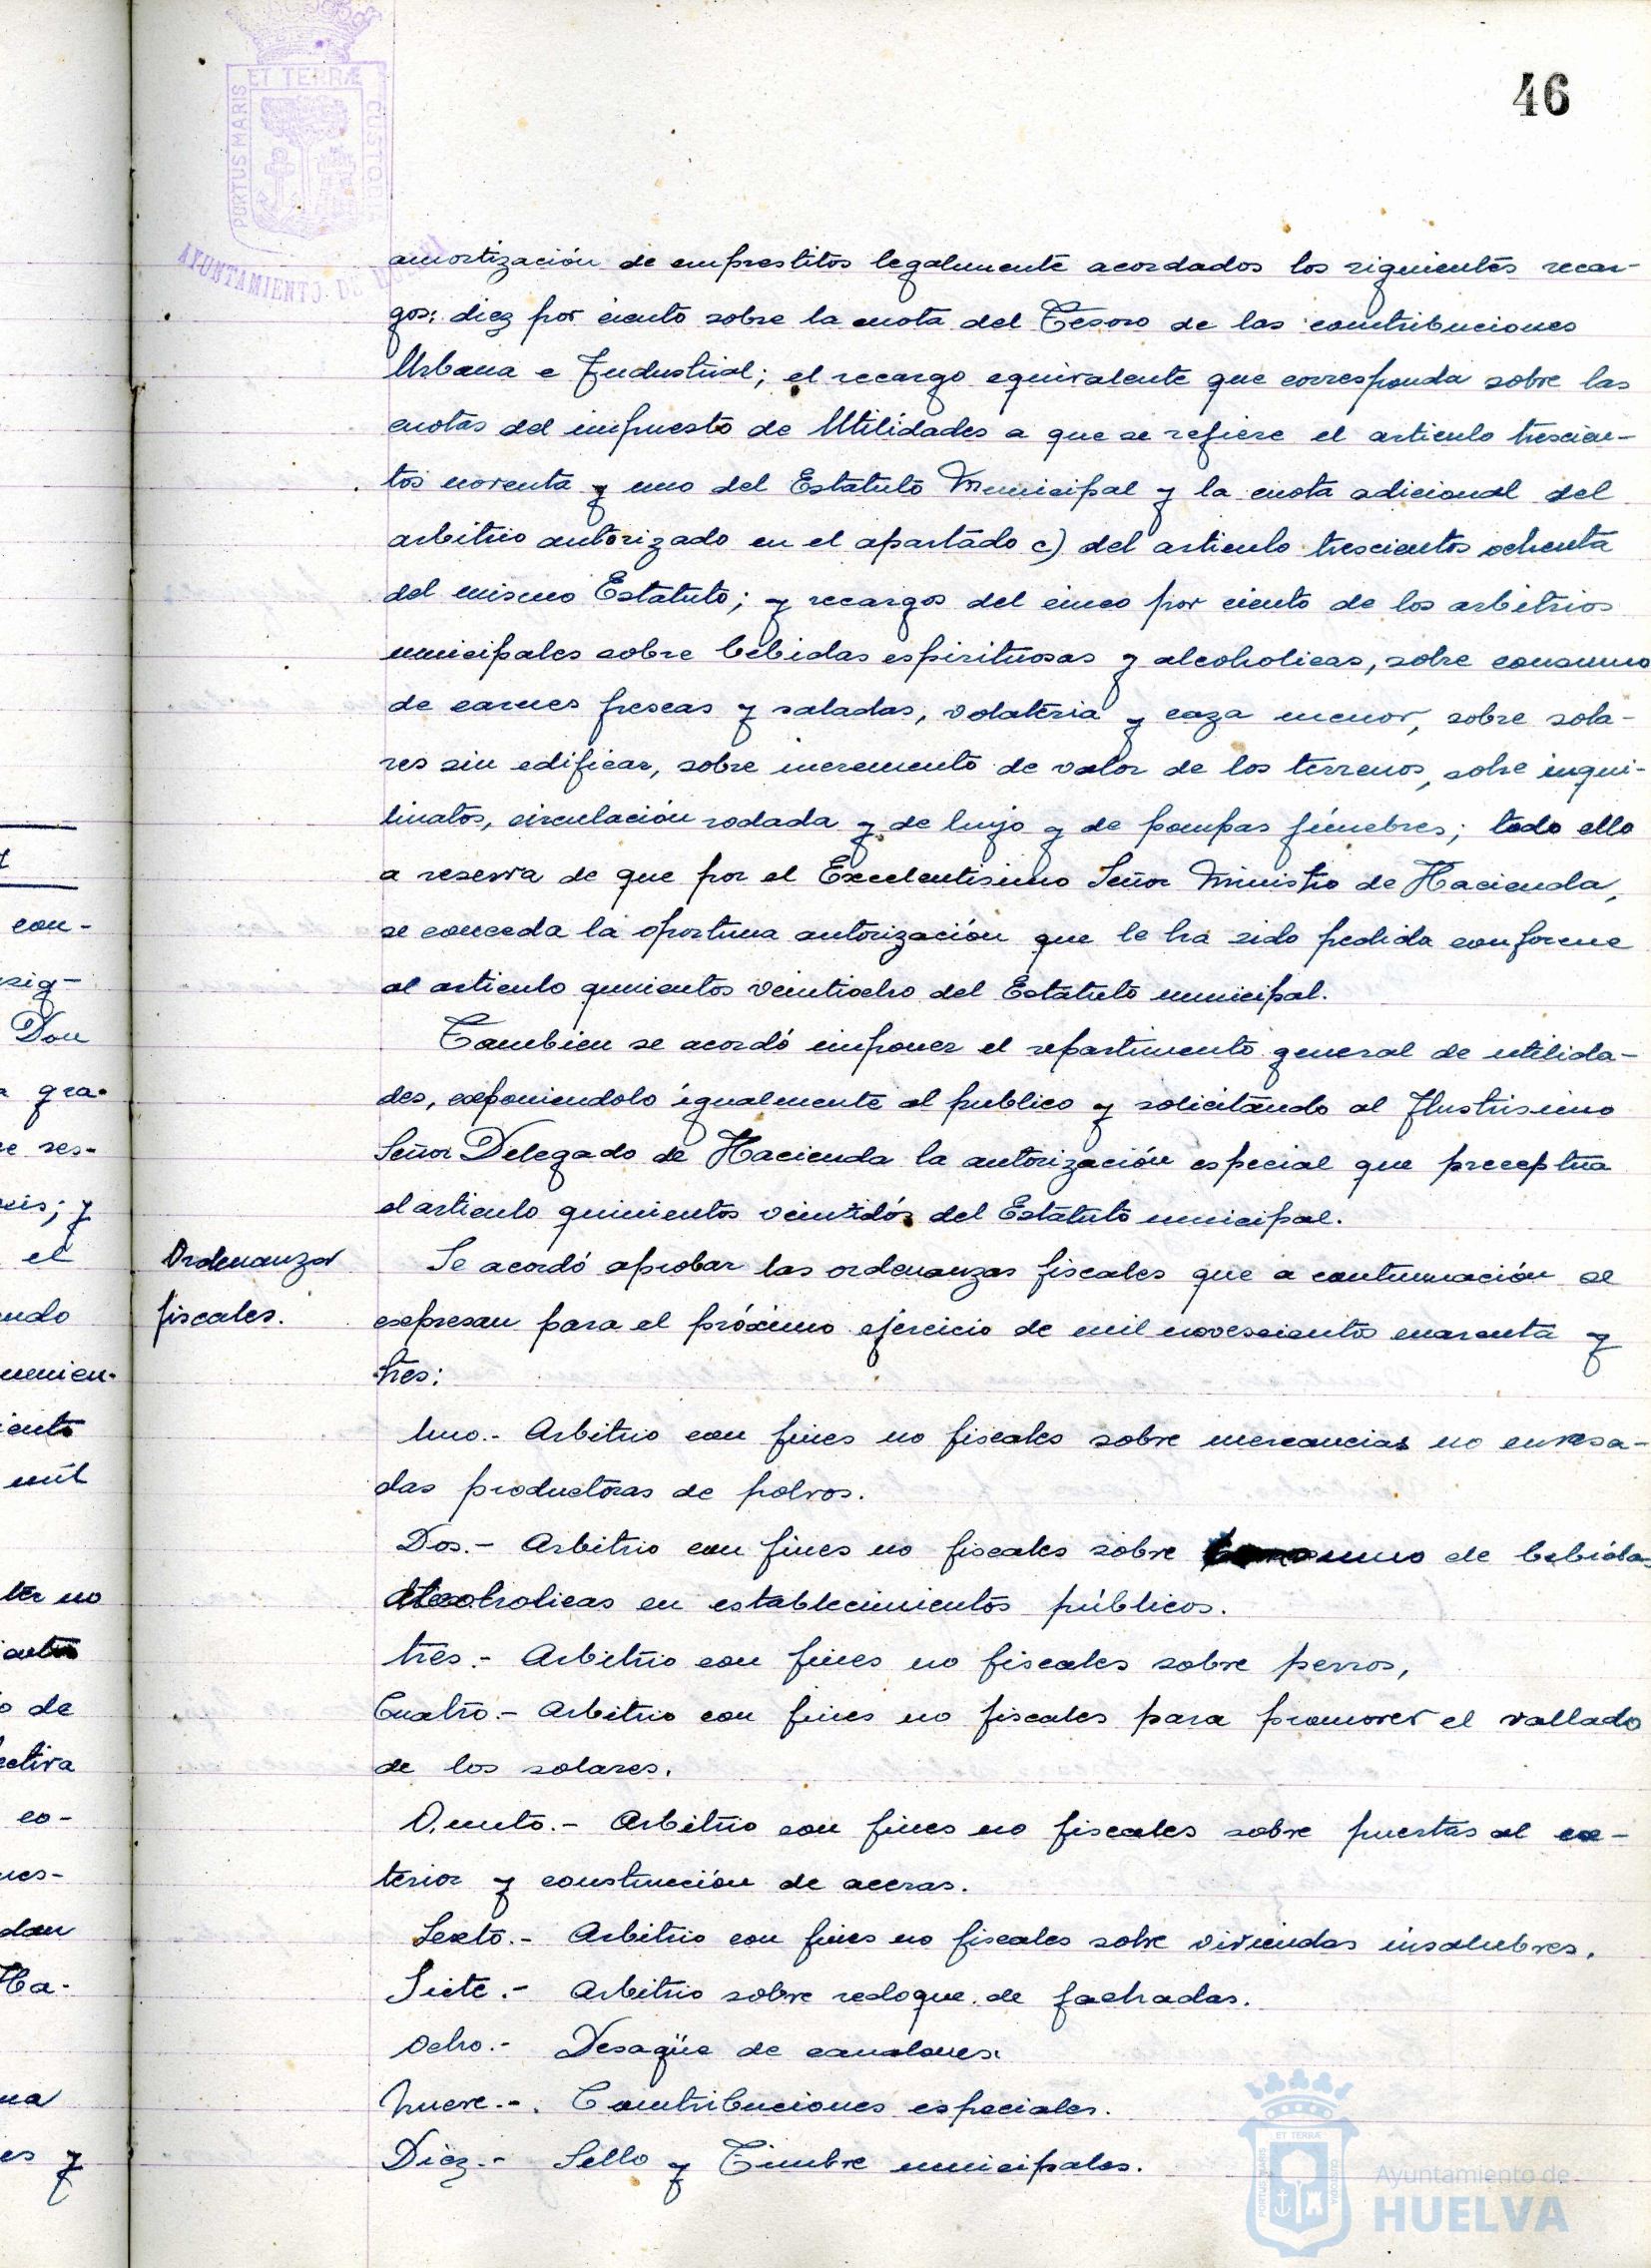 46
PORTUS MARIS ET TERRÆ CUSTODIA
AYUNTAMIENTO DE HUELVA
amortización de emprestitos legalmente acordados los siguientes recar-
gos: diez por ciento sobre la cuota del Tesoro de las contribuciones
Urbana e Industrial; el recargo equivalente que corresponda sobre las
cuotas del impuesto de Utilidades a que se refiere el articulo trescien-
tos noventa y uno del Estatuto Municipal y la cuota adicional del
arbitrio autorizado en el apartado c) del articulo trescientos ochenta
del mismo Estatuto; y recargos del cinco por ciento de los arbitrios
municipales sobre bebidas espirituosas y alcoholicas, sobre consumo
de carnes frescas y saladas, volateria y caza menor, sobre sola-
res sin edificar, sobre incremento de valor de los terrenos, sobre inqui-
linatos, circulación rodada y de lujo y de pompas fúnebres; todo ello
a reserva de que por el Excelentisimo Señor Ministro de Hacienda,
se conceda la oportuna autorización que le ha sido pedida conforme
al articulo quinientos veintiocho del Estatuto municipal.
Tambien se acordó imponer el repartimento general de utilida-
des, exponiendolo igualmente al publico y solicitando al Ilustrisimo
Señor Delegado de Hacienda la autorización especial que preceptúa
el articulo quinientos veintidós del Estatuto municipal.
Ordenanzas
fiscales.
Se acordó aprobar las ordenanzas fiscales que a continuación se
expresan para el próximo ejercicio de mil novescientos cuarenta y
tres:
Uno.- Arbitrio con fines no fiscales sobre mercancias no envasa-
das productoras de polvos.
Dos.- Arbitrio con fines no fiscales sobre consumo de bebidas
alcoholicas en establecimientos públicos.
tres.- Arbitrio con fines no fiscales sobre perros,
Cuatro.- Arbitrio con fines no fiscales para promover el vallado
de los solares.
Quinto.- Arbitrio con fines no fiscales sobre puertas al ex-
terior y construcción de aceras.
Sexto.- Arbitrio con fines no fiscales sobre viviendas insalubres.
Siete.- Arbitrio sobre revoque de fachadas.
Ocho.- Desagüe de canalones.
Nueve.- Contribuciones especiales.
Diez.- Sello y Timbre municipales.
con-
sig-
Don
gra-
res-
; y
el
ndo
mil
de
co-
Ha-
es y
Ayuntamiento de
HUELVA